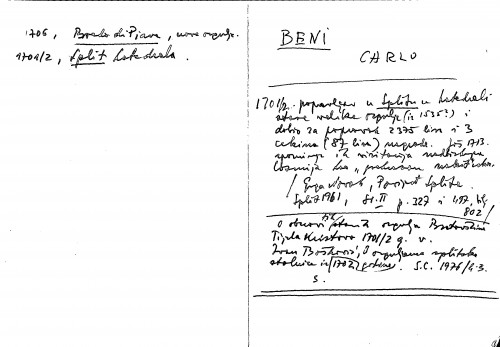 1706, Breda di Piave, nove orgulje.
1701/2, Split katedrala.
BENI
CARLO
1701/2. popravljao u Splitu u katedrali
stare velike orgulje (iz 1535?) i
dobio za popravak 2375 lira i 3
cekina (87 lira) nagrade. Još 1713.
spominje ih vizitacija nadbiskupa
Cosmija kao
/ Grga Novak, Povijest Splita
Split 1961, sv. II p. 327 i 497, bilj.
802/
O obnovi tih starih orgulja Bratovštine
Tijela Kristova 1701/2 g. v.
Ivan Bošković, O orguljama splitske
stolnice iz 1702. godine. S.C. 1976/4-3.
s.